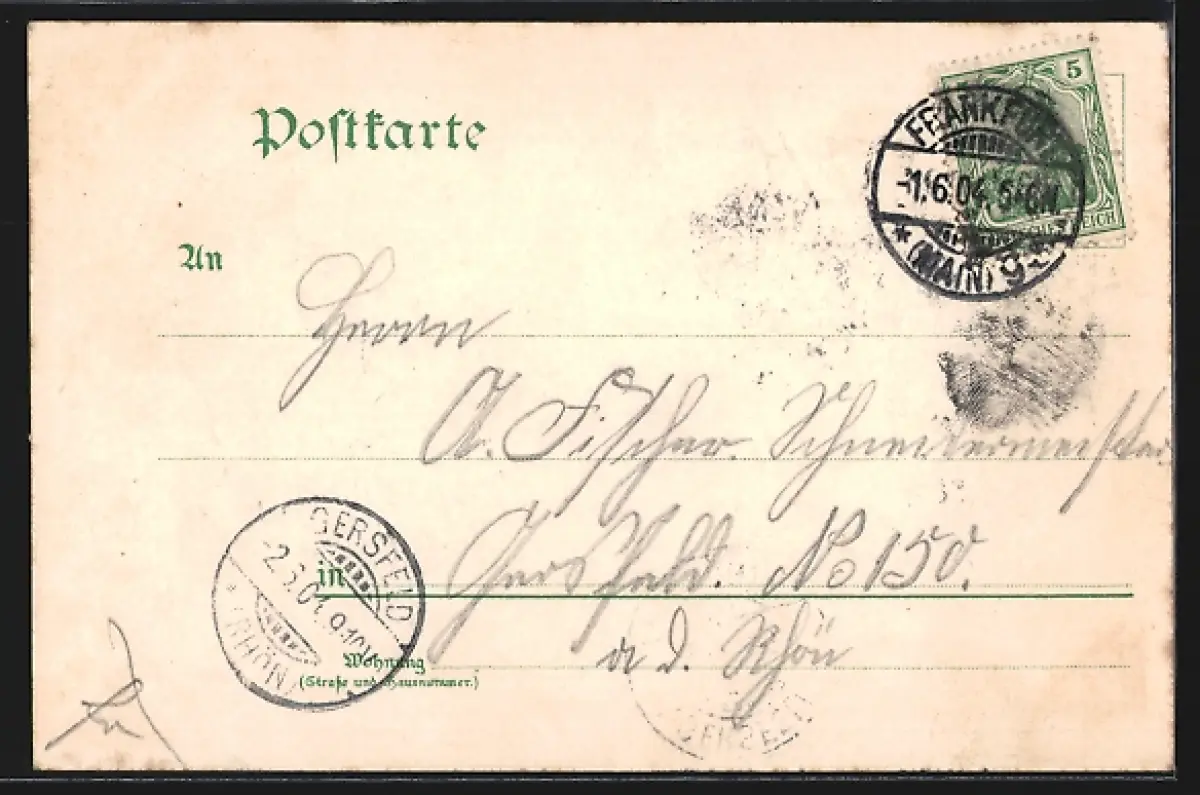 Postkarte
5
REICH
FRANKFURT
-1.6.04.
(MAIN) 9
An
Herrn
A. Fischer. Schneidermeister
in Gersfeld. No 150.
a d. Rhön
Wohnung
(Straße und Hausnummer.)
GERSFELD
-2.6.04. 9-10V.
* (RHÖN)